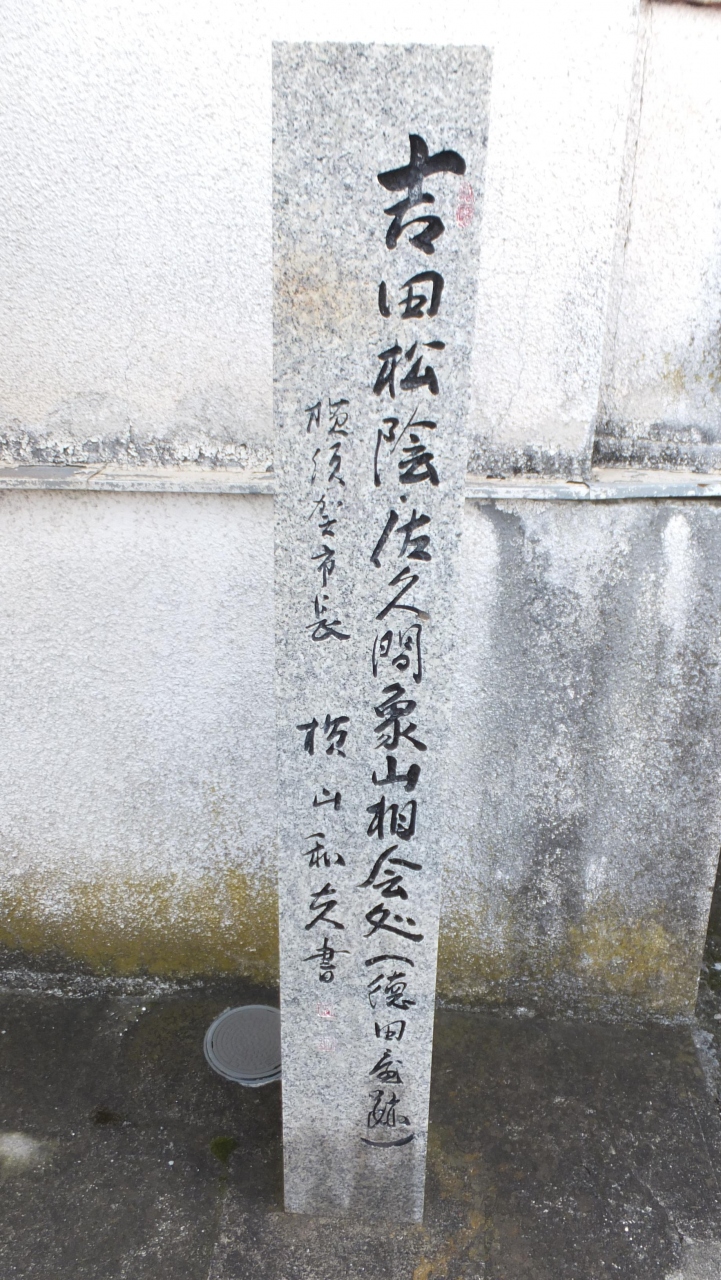 吉田松陰・佐久間象山相会処(徳田屋跡)
横須賀市長 横山和夫書